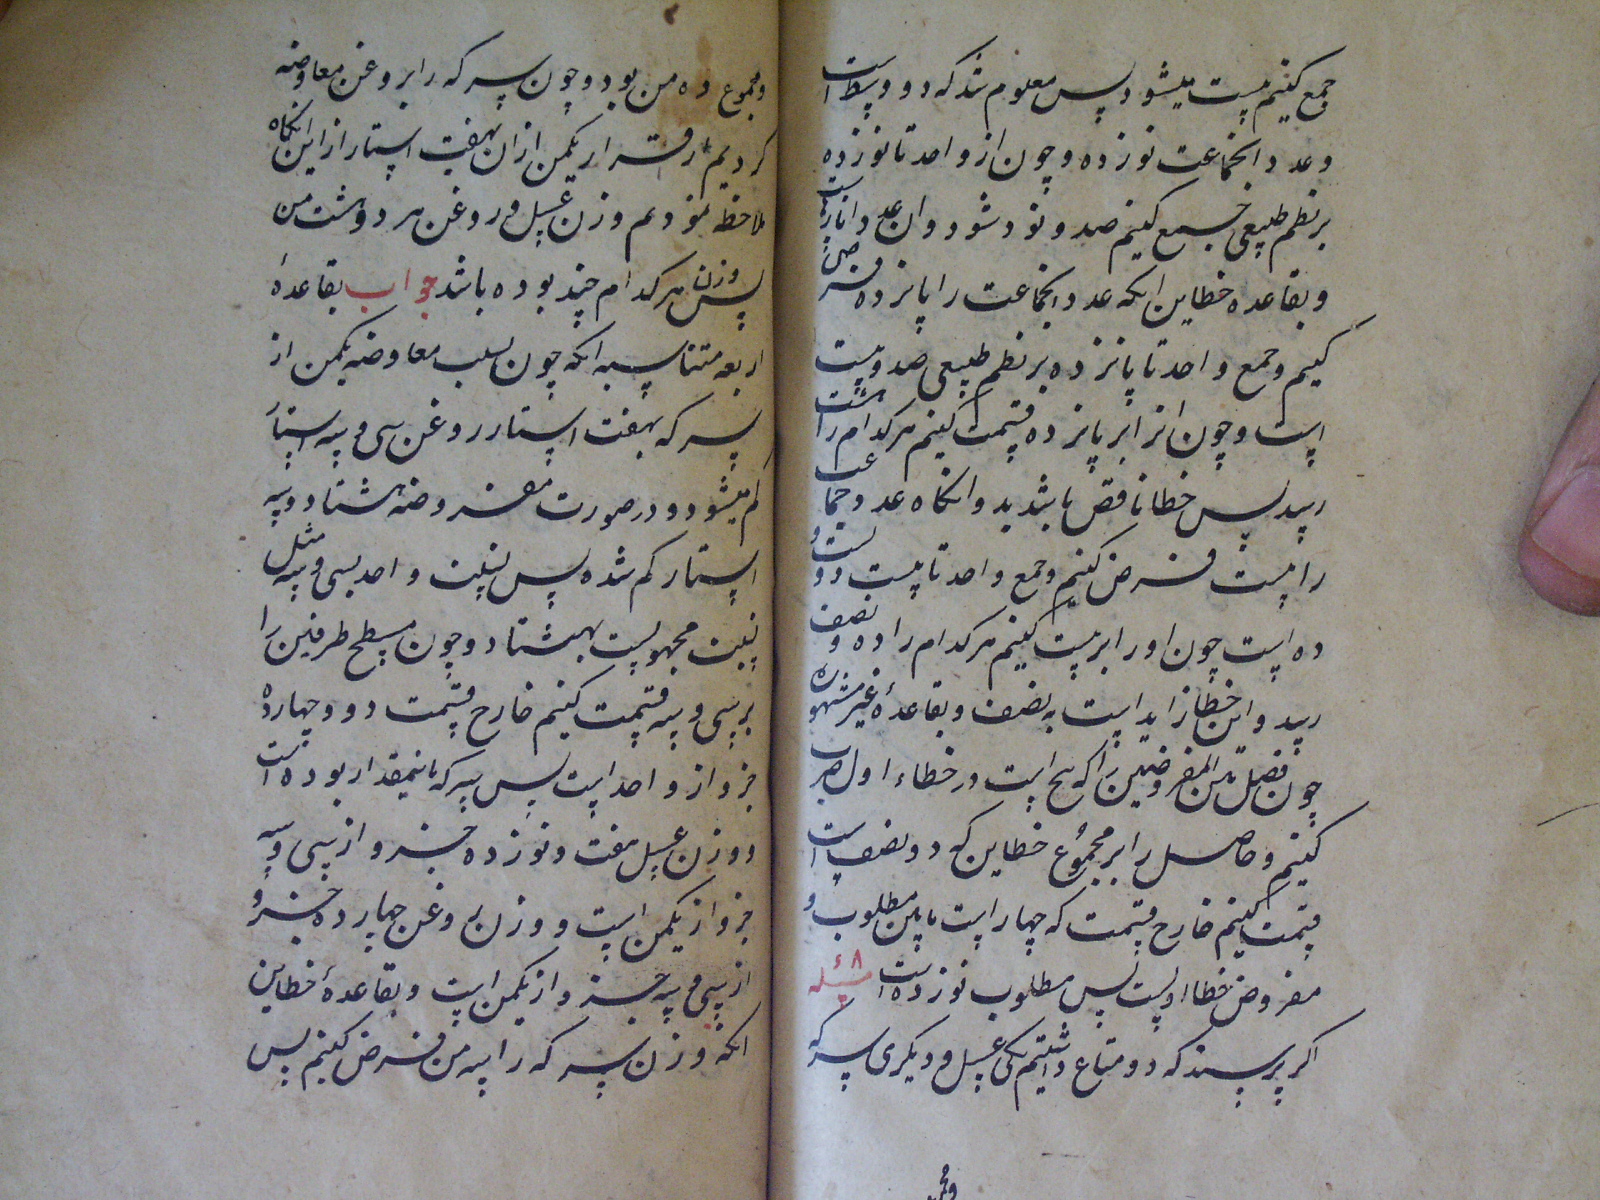 جمع کنیم بیست میشود پس معلوم شد که دو وسط است
و عدد انجماعت نوزده و چون از واحد تا نوزده
بر نظم طبیعی جمع کنیم صد و نود شود و ان عدد انارست
و بقاعده خطاین انکه عدد انجماعت را پانزده فرض
کنیم و جمع واحد تا پانزده بر نظم طبیعی صد و بیست
است و چون انرا بر پانزده قسمت کنیم هر کدام را هشت
رسد پس خطا ناقص باشد بدو انکاه عدد جماعت
را بیست فرض کنیم و جمع واحد تا بیست دویست و
ده است چون او را بر بیست کنیم هر کدام را ده و نصف
رسد و این خطا زاید است به نصف و بقاعدهٔ غیر مشهوره
چون فضل بین المفروضین را که پنج است در خطاء اول ضرب
کنیم و حاصل را بر مجموع خطاین که دو و نصف است
قسمت کنیم خارج قسمت که چهار است مابین مطلوب و
مفروض خطا اولست پس مطلوب نوزده است مسئله ۸
اکر پرسند که دو متاع داشتیم یکی عسل و دیکری سرکه
و مجموع ده من بود و چون سرکه را بروغن معاوضه
کردیم قرار یکمن ازان بهفت استار از این انکاه
ملاحظه نمودیم وزن عسل و روغن هر دو هشت من
پس وزن هر کدام چند بوده باشد جواب بقاعدهٔ
اربعه متناسبه انکه چون بسبب معاوضه یکمن از
سرکه بهفت استار روغن سی و سه استار
کم میشود و در صورت مفروضه هشتاد و سه
استار کم شده پس نسبت واحد بسی و سه مثل
نسبت مجهولست بهشتاد و چون مسطح طرفین را
بر سی و سه قسمت کنیم خارج قسمت دو و چهارده
جزو از واحد است پس سرکه باینمقدار بوده است
و وزن عسل هفت و نوزده جزو از سی و سه
جزو از یکمن است و وزن روغن چهارده جزو
از سی و سه جزو از یکمن است و بقاعدهٔ خطاین
انکه وزن سرکه را سه من فرض کنیم پس